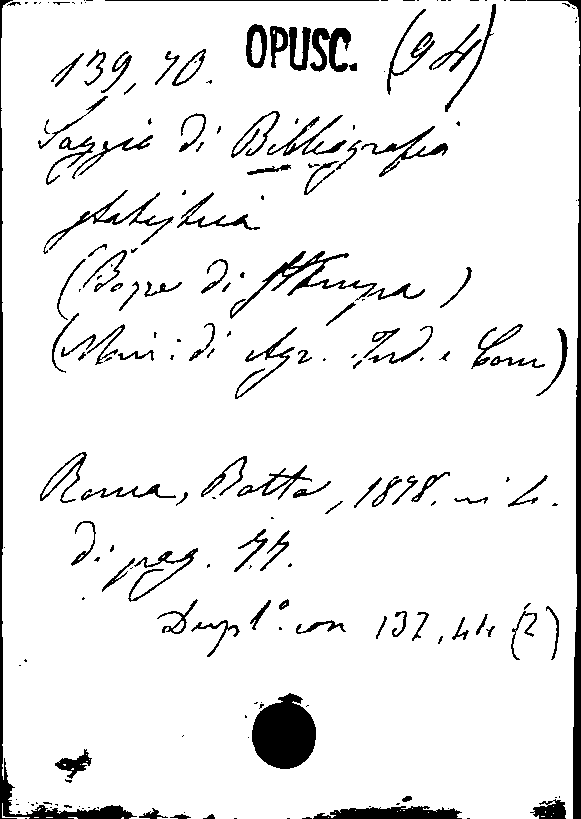 139,70. OPUSC. (94)
Saggio di Bibliografia
statistica
(Bozze di Stampa)
(Min: di Agr. Ind. e Com)
Roma, Botta, 1878. in 4.
di pag. 77.
Dupl.º con 137,44 (2)